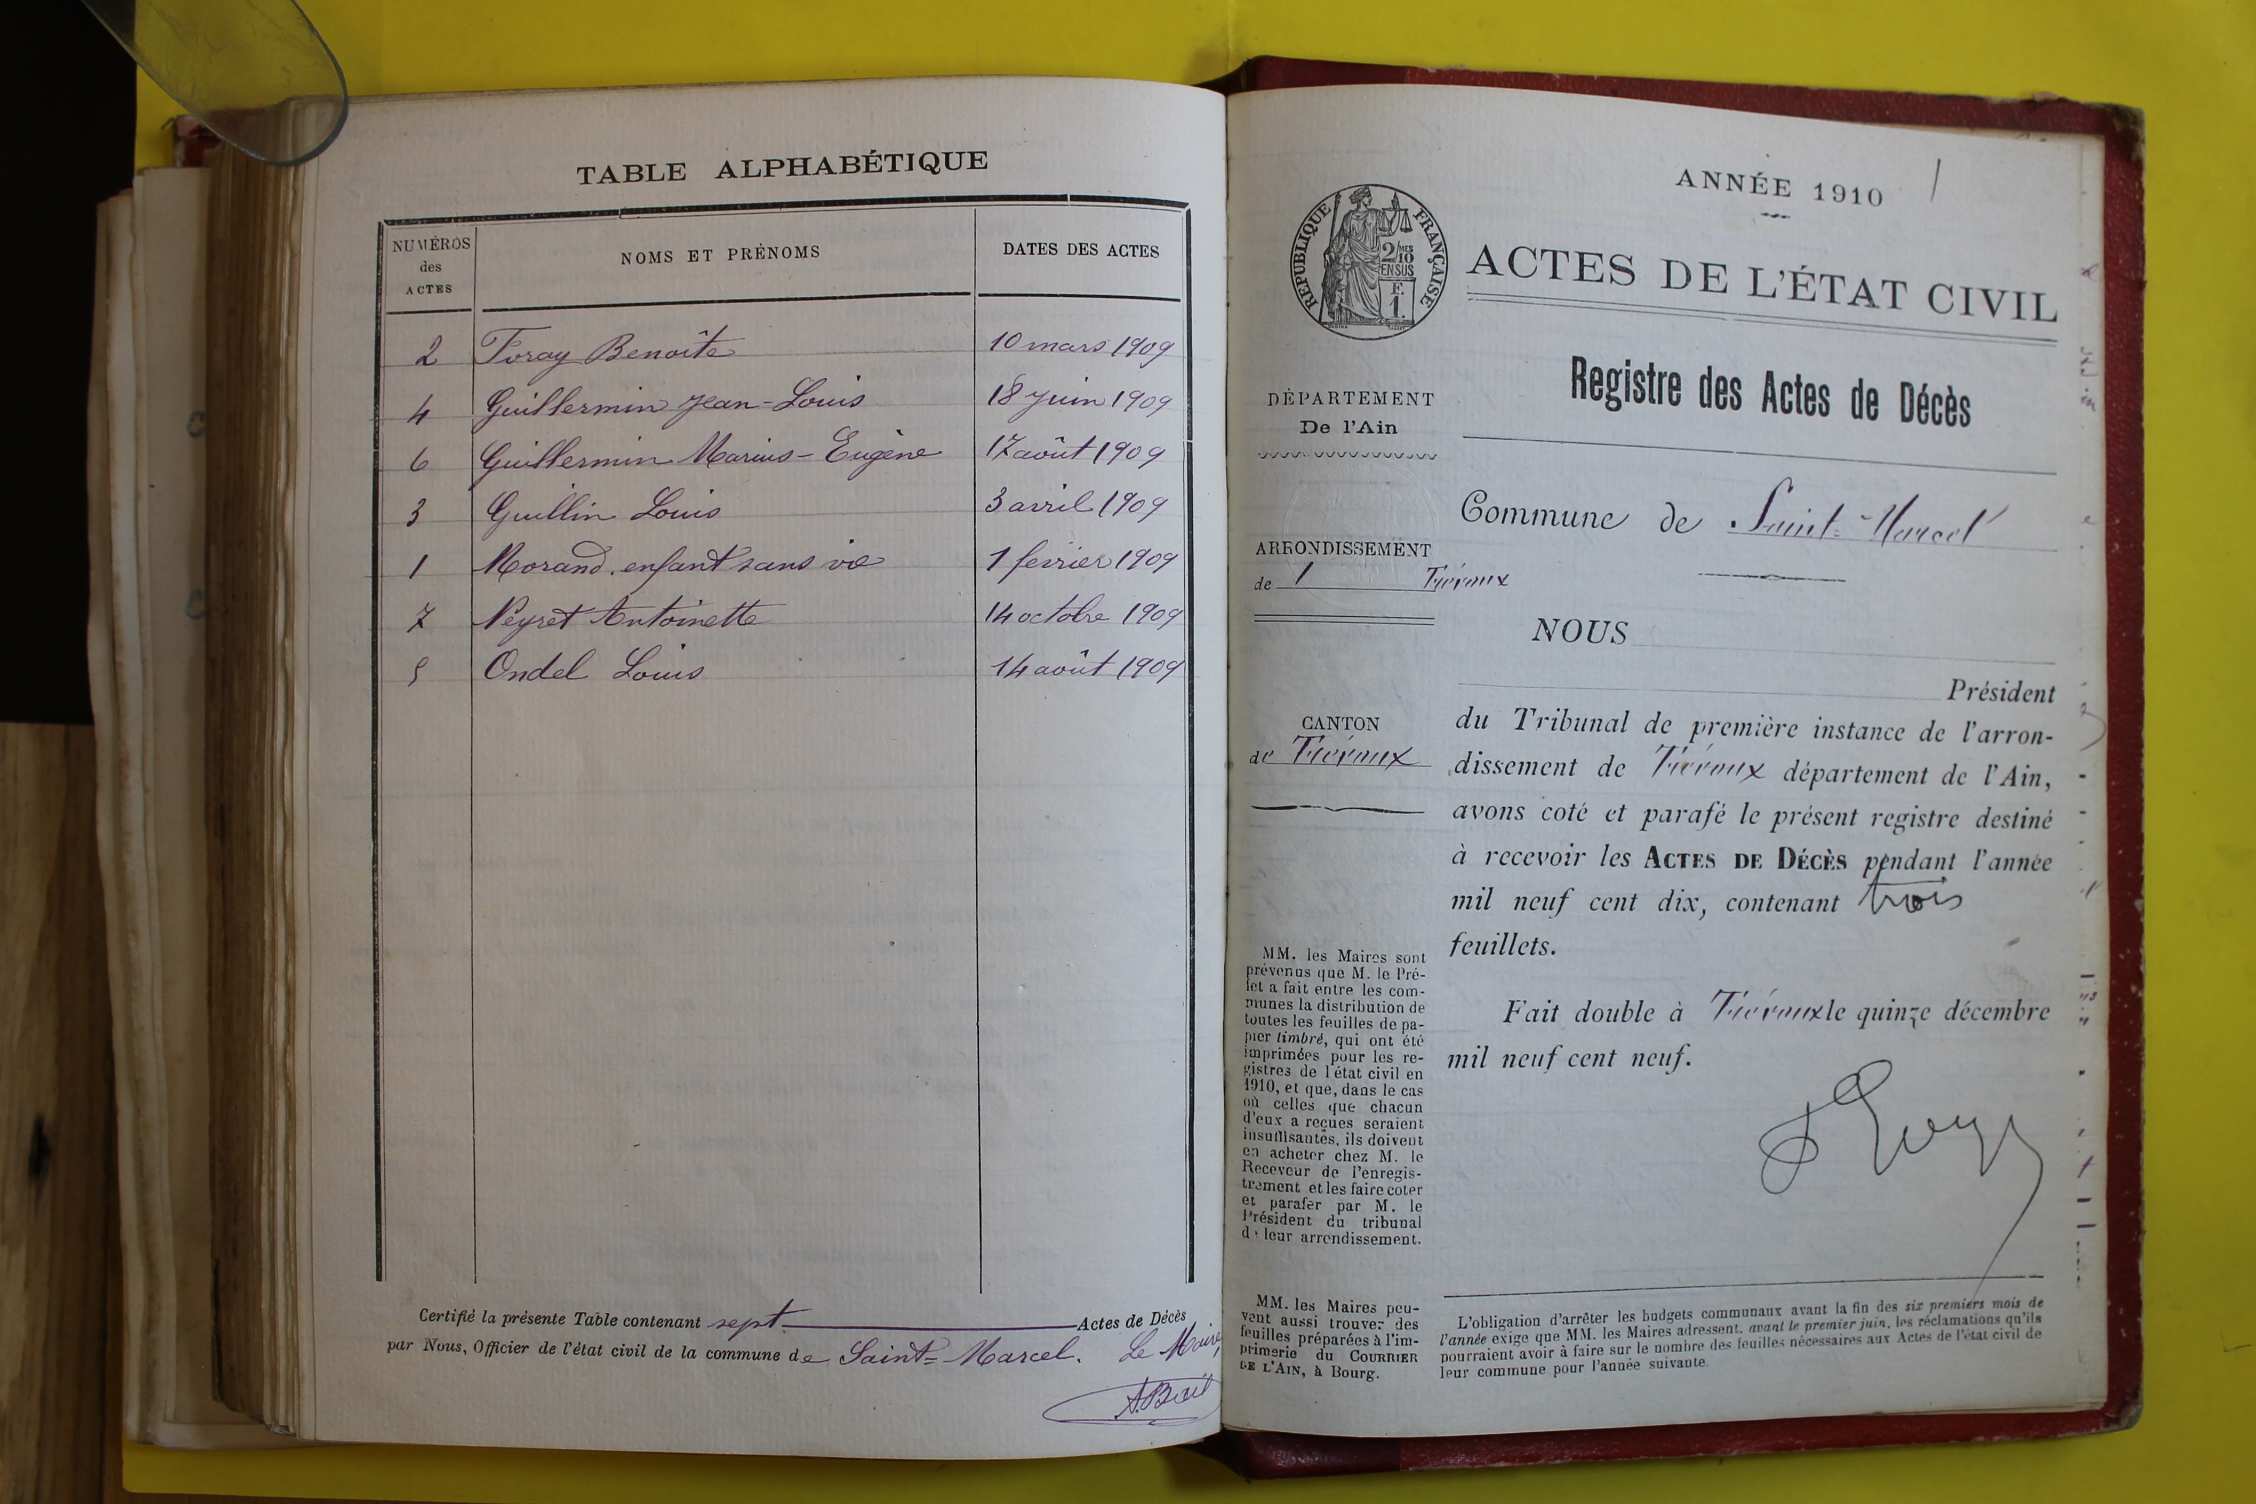 TABLE ALPHABÉTIQUE
NUMÉROS
des
ACTES
NOMS ET PRÉNOMS
DATES DES ACTES
2 Foray Benoîte 10 mars 1909
4 Guillermin Jean-Louis 18 juin 1909
6 Guillermin Marius-Eugène 17 août 1909
3 Guillin Louis 3 avril 1909
1 Morand. enfant sans vie 1 fevrier 1909
7 Neyret Antoinette 14 octobre 1909
5 Ondel Louis 14 août 1909
Certifié la présente Table contenant sept Actes de Décès
par Nous, Officier de l'état civil de la commune de Saint-Marcel. Le Maire,
ANNÉE 1910 1
RÉPUBLIQUE FRANÇAISE
2/10MES
EN SUS
F.
1.
ACTES DE L'ÉTAT CIVIL
Registre des Actes de Décès
DÉPARTEMENT
De l'Ain
ARRONDISSEMENT
de Trévoux
CANTON
de Trévoux
MM. les Maires sont
prévenus que M. le Pré-
fet a fait entre les com-
munes la distribution de
toutes les feuilles de pa-
pier timbré, qui ont été
imprimées pour les re-
gistres de l'état civil en
1910, et que, dans le cas
où celles que chacun
d'eux a reçues seraient
insuffisantes, ils doivent
en acheter chez M. le
Receveur de l'enregis-
trement et les faire coter
et parafer par M. le
Président du tribunal
de leur arrondissement.
MM. les Maires peu-
vent aussi trouver des
feuilles préparées à l'im-
primerie du COURRIER
DE L'AIN, à Bourg.
Commune de Saint-Marcel
NOUS
Président
du Tribunal de première instance de l'arron-
dissement de Trévoux département de l'Ain,
avons coté et parafé le présent registre destiné
à recevoir les ACTES DE DÉCÈS pendant l'année
mil neuf cent dix, contenant trois
feuillets.
Fait double à Trévoux le quinze décembre
mil neuf cent neuf.
L'obligation d'arrêter les budgets communaux avant la fin des six premiers mois de
l'année exige que MM. les Maires adressent, avant le premier juin, les réclamations qu'ils
pourraient avoir à faire sur le nombre des feuilles nécessaires aux Actes de l'état civil de
leur commune pour l'année suivante.